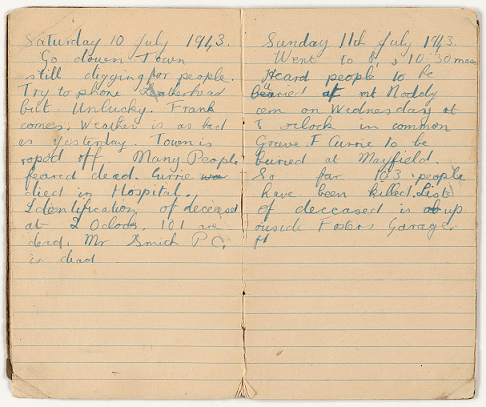 Saturday 10 July 1943.
Go down Town
still digging for people.
Try to phone Leatherhead
but Unlucky. Frank
comes. Weather is as bad
as yesterday. Town is
roped off. Many People
feared dead. Currie
died in Hospital.
Identification of deceased
at 2 Oclock. 101 are
dead. Mr Smith P.C.
is dead
Sunday 11th July 1943.
Went to 10.30 mass
Heard people to be
buried at mt Noddy
cem on Wednesday at
3 oclock in common
Grave. F Currie to be
buried at Mayfield.
So far 103 people
have been killed. List
of deceased is up
outside Fosters Garage.